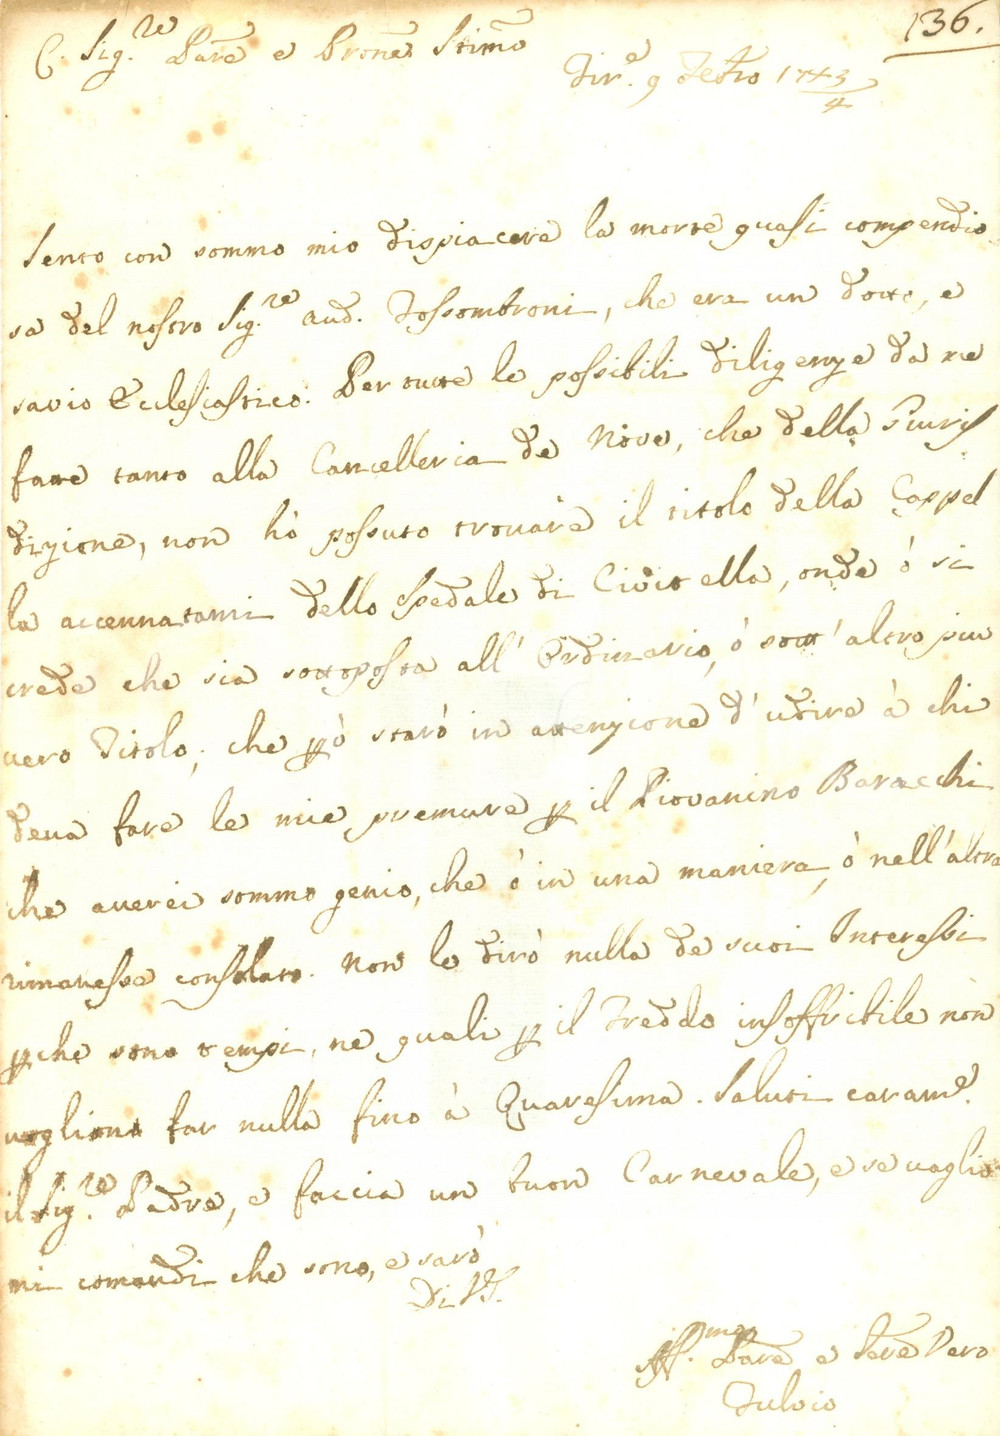 136.
C. Sig.re Pare e Prone Stimo
Fir.e 9 Febro 1743/4
Sento con sommo mio dispiacere la morte quasi compendio
sa del nostro Sig.re Aud. Fossombroni, che era un dotto, e
savio Ecclesiastico. Per tutte le possibili diligenze da me
fatte tanto alla Cancelleria de Nove, che della Giuris
dizione, non hò possuto trovare il titolo della Cappel
la accennatami dello Spedale di Civitella, onde ò si
crede che sia sottoposta all' Ordinario, ò sott' altro piu
vero Titolo; che però starò in attenzione d' udire à chi
deva fare le mie premure per il Piovanino Baracchi
che averei sommo genio, che ò in una maniera, ò nell' altra
rimanesse consolato. Non le dirò nulla de suoi Interessi
perche sono tempi, ne quali per il Freddo insoffribile non
vogliono far nulla fino à Quaresima. Saluti caram.e
il Sig.re Padre, e faccia un buon Carnevale, e se vaglio
mi comandi che sono, e sarò
Di VS.
Aff.mo Pare e Sere Vero
Fulvio